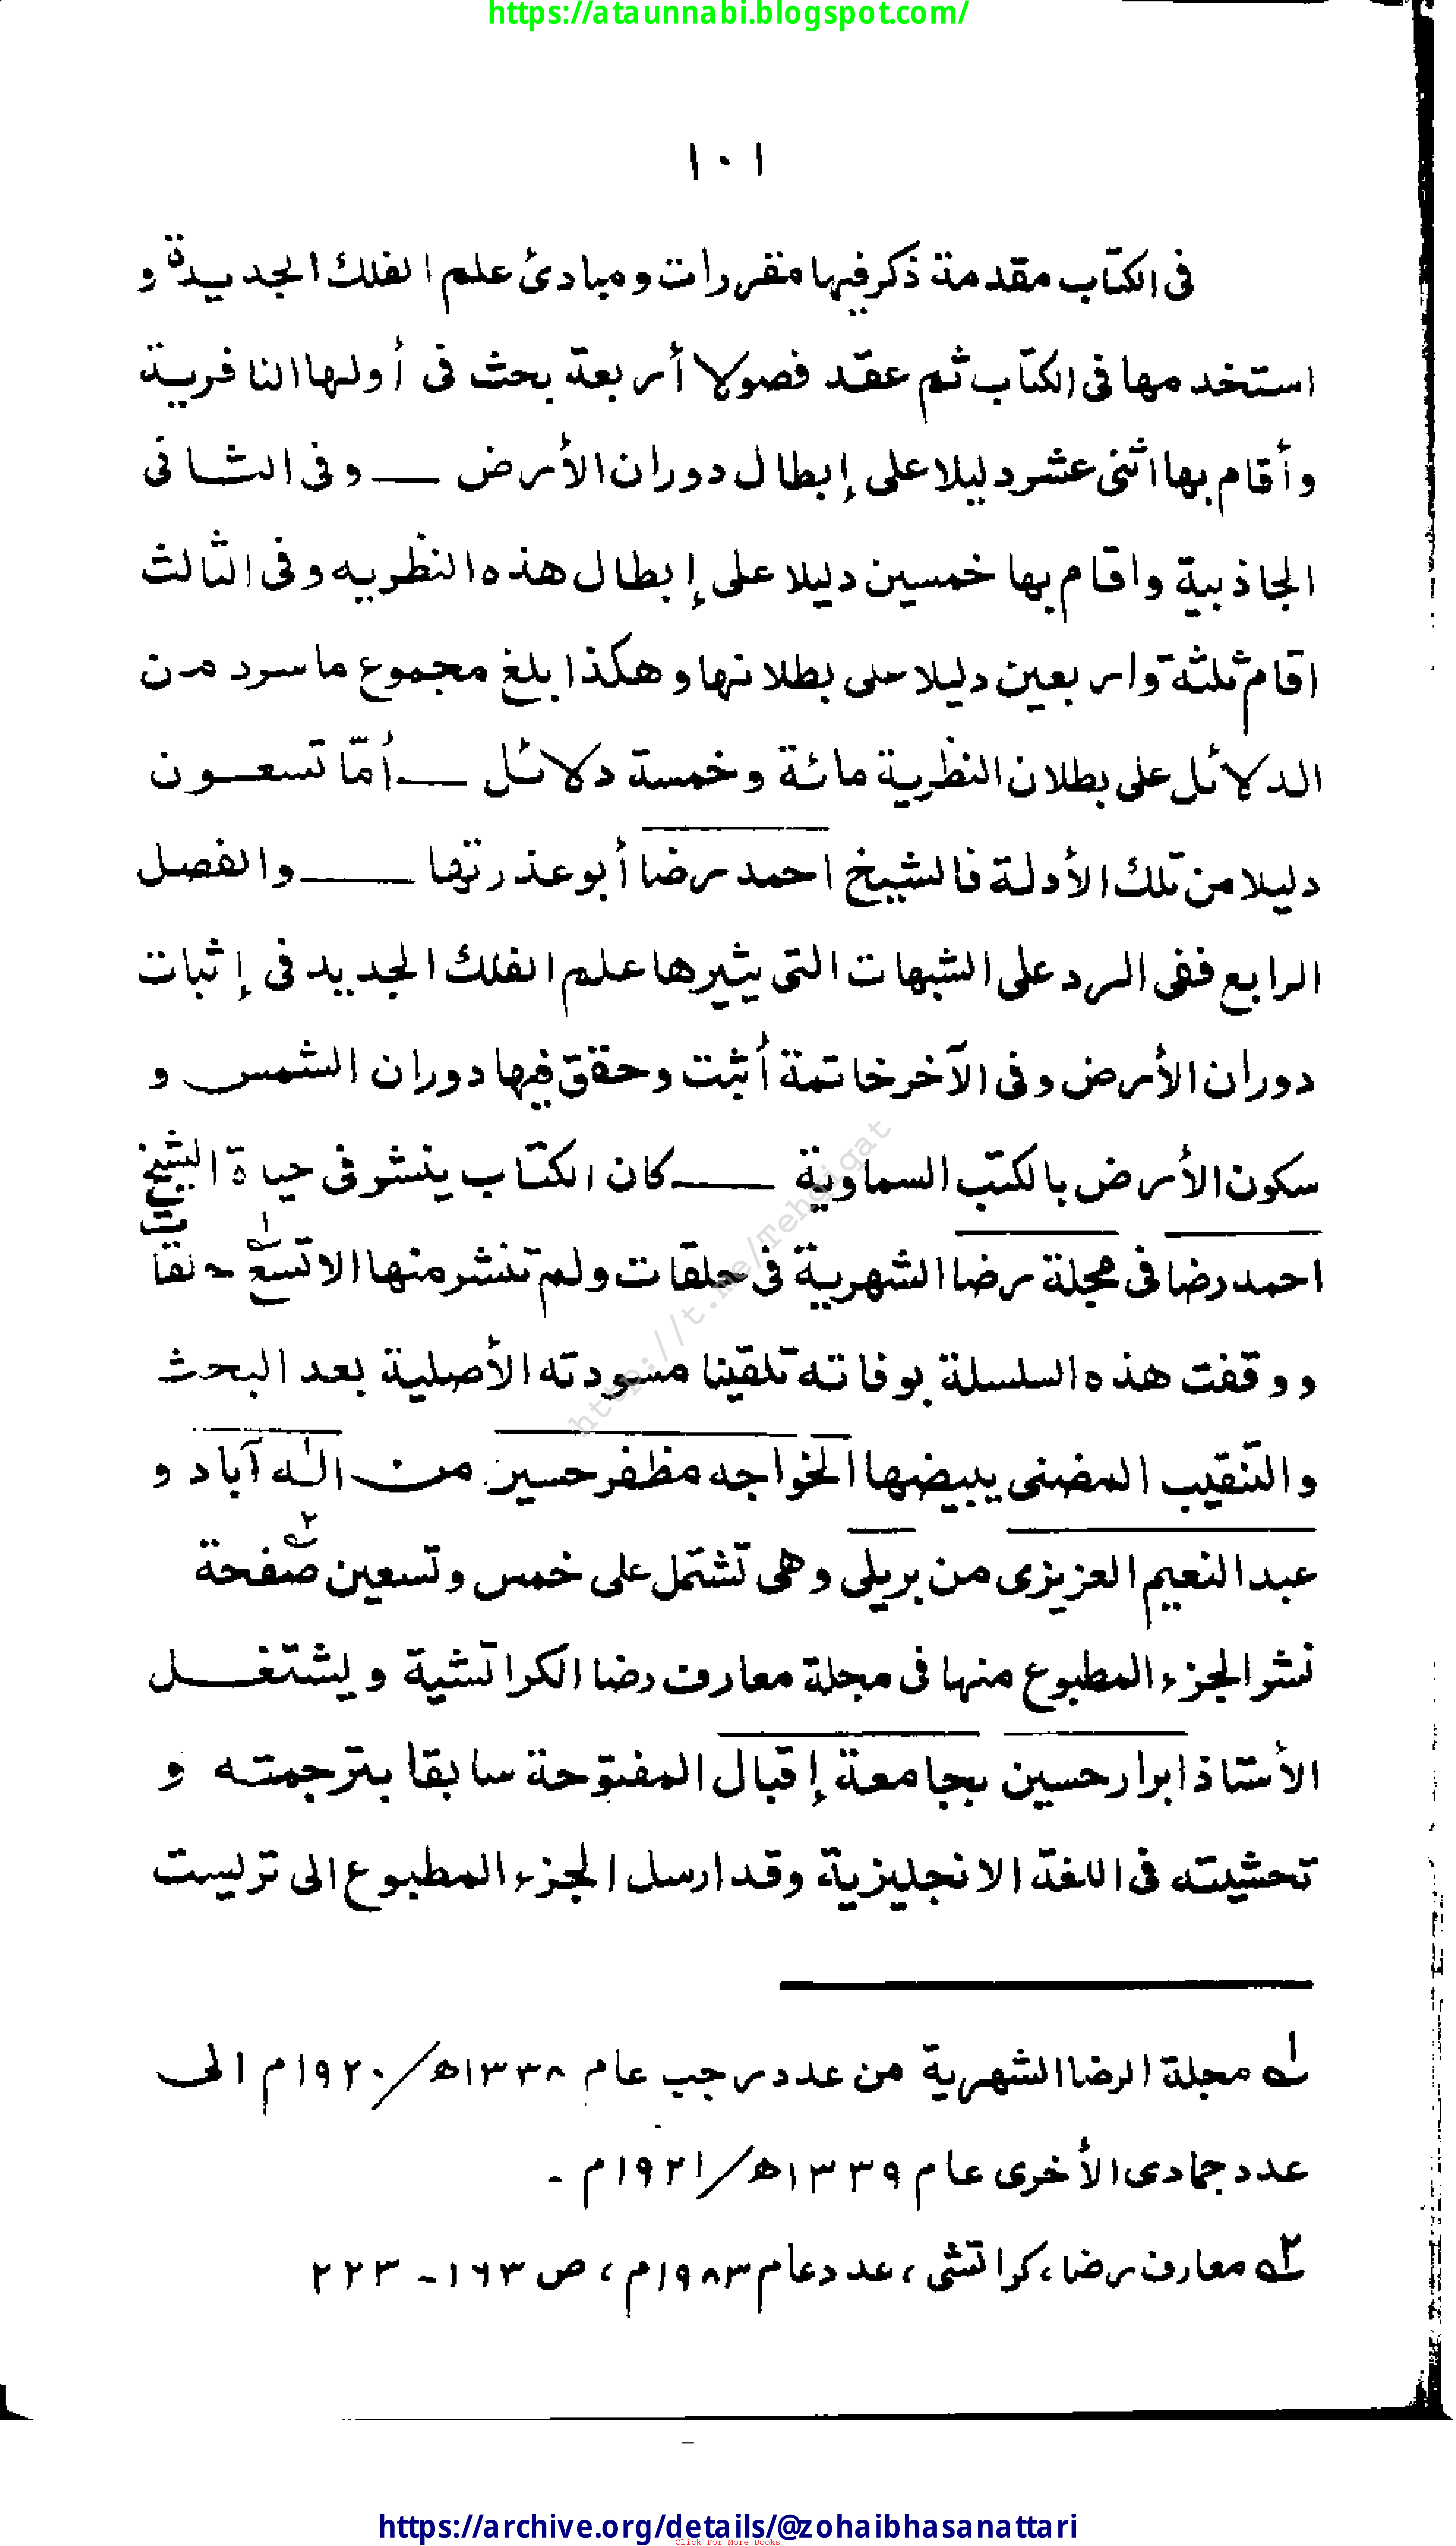 https://ataunnabi.blogspot.com/
١٠١
فى الكتاب مقدمة ذكر فيها مقررات ومبادئ علم الفلك الجديدة و
استخدمها فى الكتاب ثم عقد فصولا أربعة بحث فى أولها النافرية
وأقام بها اثنى عشر دليلا على إبطال دوران الأرض — وفى الثانى
الجاذبية واقام بها خمسين دليلا على إبطال هذه النظريه وفى الثالث
اقام ثلثة واربعين دليلا على بطلانها وهكذا بلغ مجموع ما سرد من
الدلائل على بطلان النظرية مائة وخمسة دلائل — أمّا تسعون
دليلا من تلك الأدلة فالشيخ احمد رضا أبو عذرتها — والفصل
الرابع ففى الرد على الشبهات التى يثيرها علم الفلك الجديد فى إثبات
دوران الأرض وفى الآخر خاتمة أثبت وحقق فيها دوران الشمس و
سكون الأرض بالكتب السماوية — كان الكتاب ينشر فى حياة الشيخ
احمد رضا فى مجلة رضا الشهرية فى حلقات ولم تنشر منها الا تسع حلقات ١
ووقفت هذه السلسلة بوفاته تلقينا مسودته الأصلية بعد البحث
والتنقيب المضنى يبيضها الخواجه مظفر حسين من اله آباد و
عبد النعيم العزيزى من بريلى وهى تشتمل على خمس وتسعين صفحة ٢
نشر الجزء المطبوع منها فى مجلة معارف رضا الكراتشية ويشتغل
الأستاذ ابرار حسين بجامعة إقبال المفتوحة سابقا بترجمته و
تحشيته فى اللغة الانجليزية وقد ارسل الجزء المطبوع الى تريست
١ مجلة الرضا الشهرية من عدد رجب عام ١٣٣٨ھ/١٩٢٠م الى
عدد جمادى الأخرى عام ١٣٣٩ھ/١٩٢١م -
٢ معارف رضا، كراتشى، عدد عام ١٩٨٣م، ص ١٦٣- ٢٢٣
http://t.me/Tehqiqat
https://archive.org/details/@zohaibhasanattari
Click For More Books